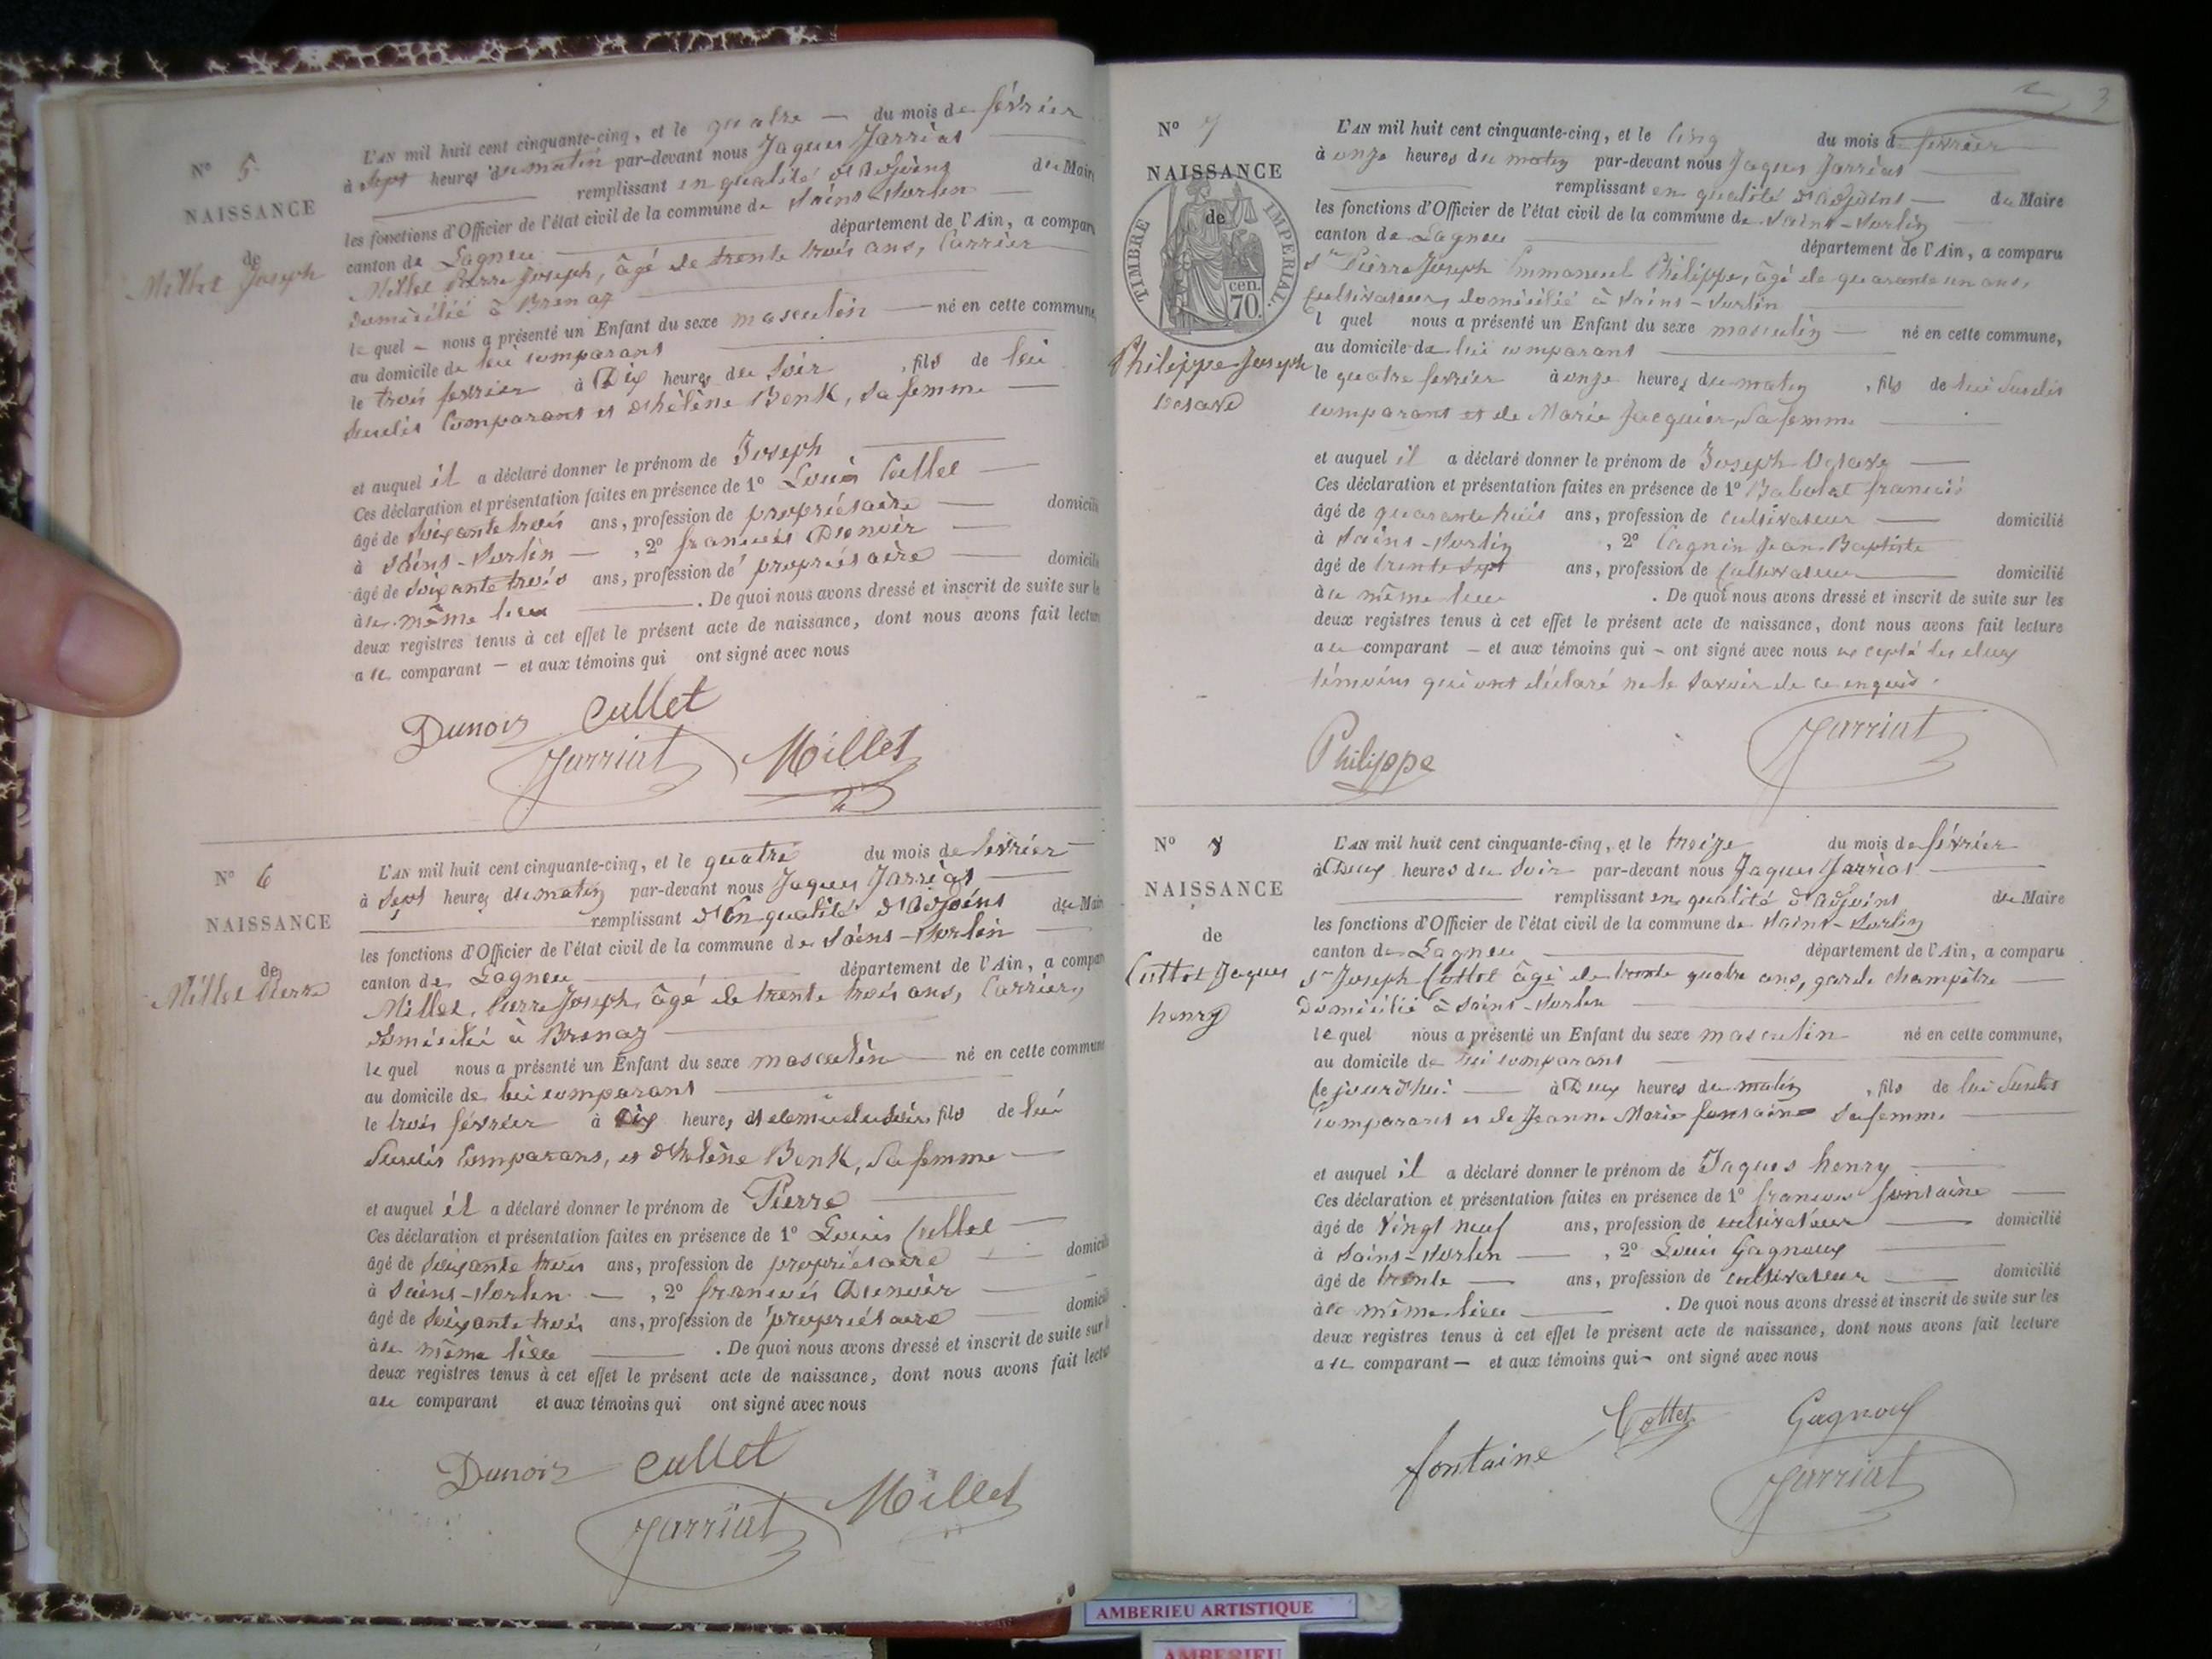 N° 5
NAISSANCE
de
Millet Joseph
L'AN mil huit cent cinquante-cinq, et le quatre — du mois de février
à sept heures du matin par-devant nous Jaques Jarriat
remplissant en qualité d'adjoint du Maire
les fonctions d'Officier de l'état civil de la commune de Saint-Sorlin
canton de Lagneu département de l'Ain, a compar
Millet Pierre Joseph, âgé de trente trois ans, Carrier
domicilié à Brenaz
le quel – nous a présenté un Enfant du sexe masculin — né en cette commune,
au domicile de lui comparant
le trois février à Dix heures du soir, fils de lui
susdit Comparant et d'hélène Bonk, sa femme
et auquel il a déclaré donner le prénom de Joseph
Ces déclaration et présentation faites en présence de 1° Louis Cullet
âgé de soixante trois ans, profession de propriétaire domicilié
à Saint-Sorlin —, 2° françois Dunoir
âgé de soixante trois ans, profession de propriétaire domicilié
à le même lieu . De quoi nous avons dressé et inscrit de suite sur le
deux registres tenus à cet effet le présent acte de naissance, dont nous avons fait lectur
a le comparant — et aux témoins qui ont signé avec nous
Dunoir Cullet
Jarriat Millet
N° 6
NAISSANCE
de
Millet Pierre
L'AN mil huit cent cinquante-cinq, et le quatre du mois de février
à sept heures du matin par-devant nous Jaques Jarriat
remplissant d'En qualité d'adjoint du Mair
les fonctions d'Officier de l'état civil de la commune de Saint-Sorlin
canton de Lagneu département de l'Ain, a compar
Millet, Pierre Joseph, âgé de trente trois ans, Carrier,
domicilié à Brenaz
le quel nous a présenté un Enfant du sexe masculin — né en cette commune
au domicile de lui comparant
le trois février à Dix heures et demie du soir, fils de lui
susdit Comparant, et d'hélène Bonk, sa femme
et auquel il a déclaré donner le prénom de Pierre
Ces déclaration et présentation faites en présence de 1° Louis Cullet
âgé de soixante trois ans, profession de propriétaire domicilié
à Saint-Sorlin —, 2° françois Dunoir
âgé de soixante trois ans, profession de propriétaire domicilié
à le même lieu . De quoi nous avons dressé et inscrit de suite sur
deux registres tenus à cet effet le présent acte de naissance, dont nous avons fait lectu
a le comparant et aux témoins qui ont signé avec nous
Dunoir Cullet
Jarriat Millet
3
N° 7
NAISSANCE
de
TIMBRE IMPERIAL.
70 cen.
Philippe Joseph
Octave
L'AN mil huit cent cinquante-cinq, et le Cinq du mois de février
à onze heures du matin par-devant nous Jaques Jarriat
remplissant en qualité d'adjoint — du Maire
les fonctions d'Officier de l'état civil de la commune de Saint-Sorlin
canton de Lagneu département de l'Ain, a comparu
Sr Pierre Joseph Emmanuel Philippe, âgé de quarante un ans,
Cultivateur, domicilié à Saint-Sorlin
l quel nous a présenté un Enfant du sexe masculin — né en cette commune,
au domicile de lui comparant
le quatre février à onze heures du matin, fils de lui susdit
comparant et de Marie Jacquier, sa femme
et auquel il a déclaré donner le prénom de Joseph Octave
Ces déclaration et présentation faites en présence de 1° Babolat françois
âgé de quarante huit ans, profession de cultivateur domicilié
à Saint-Sorlin, 2° Cagnin Jean-Baptiste
âgé de trente sept ans, profession de Cultivateur domicilié
à le même lieu . De quoi nous avons dressé et inscrit de suite sur les
deux registres tenus à cet effet le présent acte de naissance, dont nous avons fait lecture
a le comparant – et aux témoins qui – ont signé avec nous excepté les deux
témoins qui ont déclaré ne le savoir de ce enquis.
Philippe Jarriat
N° 8
NAISSANCE
de
Cottet Jaques
henry
L'AN mil huit cent cinquante-cinq, et le treize du mois de février
à Deux heures du soir par-devant nous Jaques Jarriat
remplissant en qualité d'adjoint du Maire
les fonctions d'Officier de l'état civil de la commune de Saint-Sorlin
canton de Lagneu département de l'Ain, a comparu
Sr Joseph Cottet âgé de trente quatre ans, garde champêtre
Domicilié à Saint-Sorlin
le quel nous a présenté un Enfant du sexe masculin né en cette commune,
au domicile de lui comparant
Ce jourd'hui — à Deux heures du matin, fils de lui susdit
Comparant et de Jeanne Marie fontaine sa femme
et auquel il a déclaré donner le prénom de Jaques henry
Ces déclaration et présentation faites en présence de 1° françois fontaine
âgé de Vingt neuf ans, profession de cultivateur domicilié
à Saint-Sorlin —, 2° Louis Gagnoux
âgé de trente — ans, profession de cultivateur domicilié
à le même lieu . De quoi nous avons dressé et inscrit de suite sur les
deux registres tenus à cet effet le présent acte de naissance, dont nous avons fait lecture
a le comparant — et aux témoins qui – ont signé avec nous
fontaine Cottet Gagnoux
Jarriat
AMBERIEU ARTISTIQUE
AMBERIEU